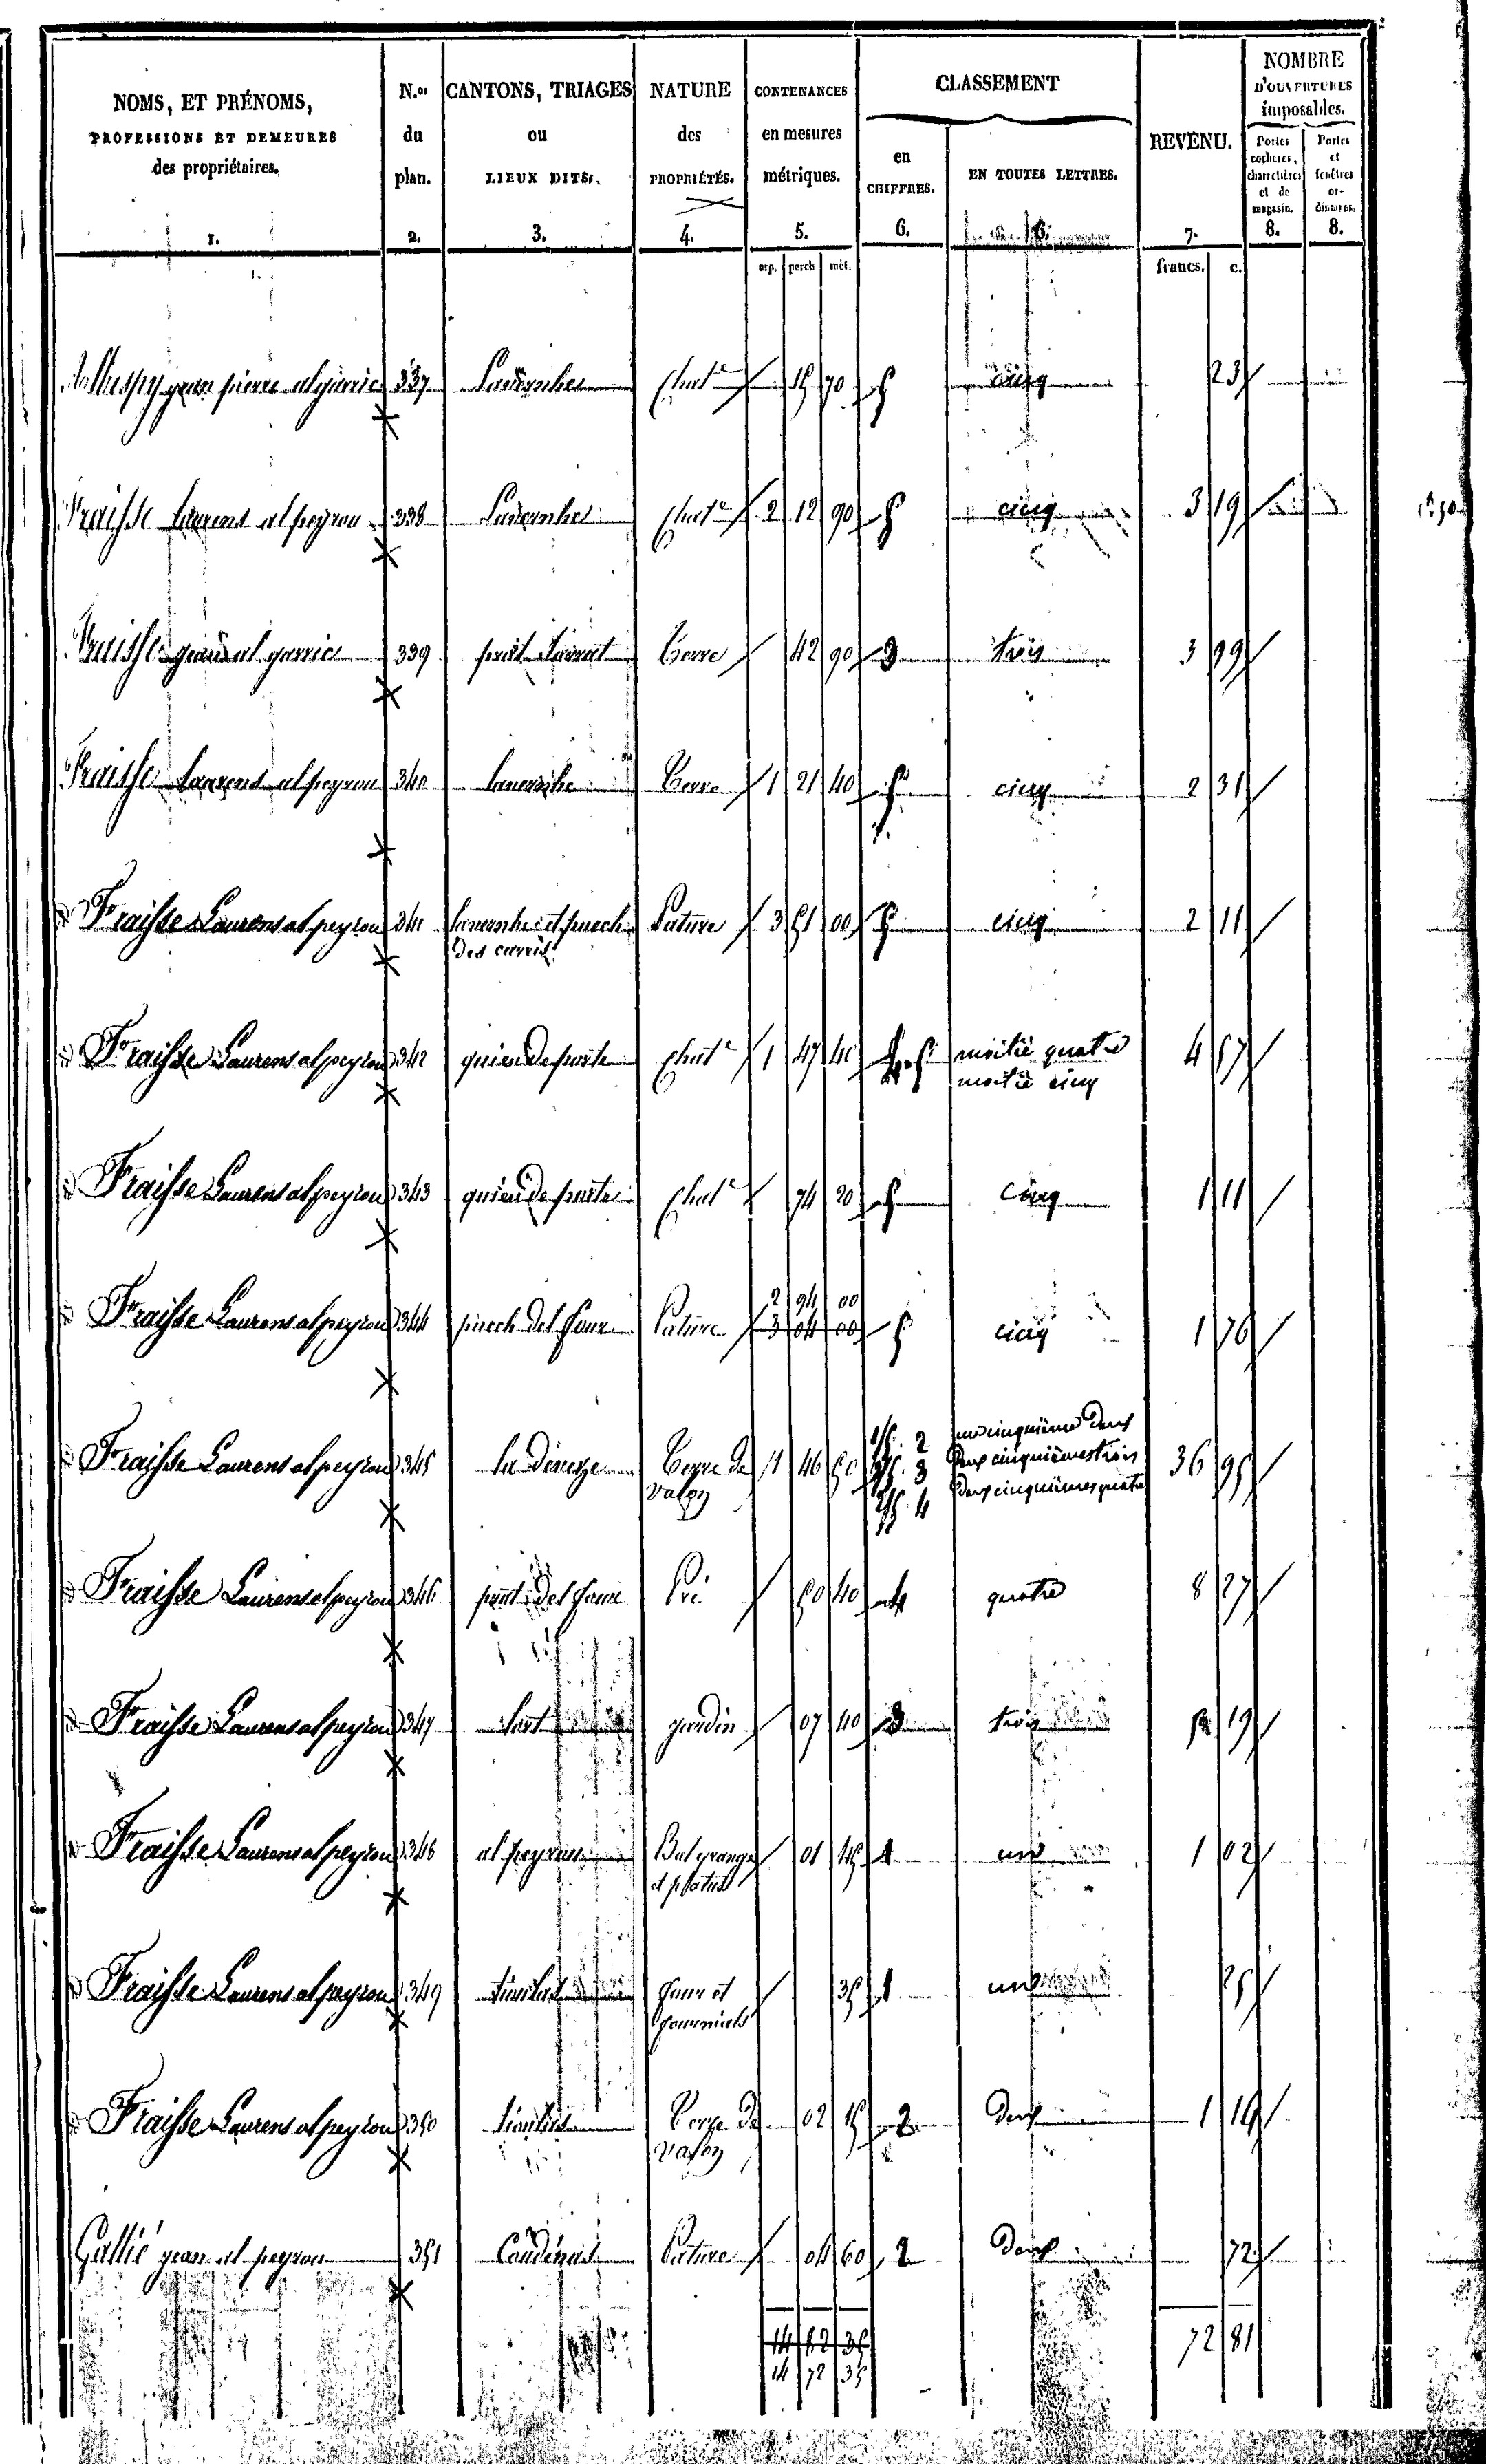 NOMS, ET PRÉNOMS,
PROFESSIONS ET DEMEURES
des propriétaires.
1.
N.os
du
plan.
2.
CANTONS, TRIAGES
ou
LIEUX DITS.
3.
NATURE
des
PROPRIÉTÉS.
4.
CONTENANCES
en mesures
métriques.
5.
CLASSEMENT
en
CHIFFRES.
6.
EN TOUTES LETTRES.
6.
REVENU.
7.
NOMBRE
D'OUVERTURES
imposables.
Portes
cochères,
charretières
et de
magasin.
8.
Portes
et
fenêtres
or-
dinaires.
8.
arp. perch mèt.
francs. c.
jean pierre al garric 337 Lavernhe Chat.e 15 70 5 cinq 23
Fraisse Laurens al peyrou 338 Lavernhe Chat.e 2 12 90 5 cinq 3 19
Fraisse jean al garric 339 Terre 42 90 3 trois 3 99
Fraisse Laurens al peyrou 340 lavernhe Terre 1 21 40 5 cinq 2 31
Fraisse Laurens al peyrou 341 lavernhe et puech Pature 3 51 00 5 cinq 2 11
Fraisse Laurens al peyrou 342 Chat.e 1 47 40 moitié quatre 4 57
moitié cinq
Fraisse Laurens al peyrou 343 Chat.e 74 20 5 Cinq 1 11
2 94 00
Fraisse Laurens al peyrou 344 puech del four Pature 3 04 00 5 cinq 1 76
1/5. 2 un cinquième deux
Fraisse Laurens al peyrou 345 Terre de 1 46 50 2/5. 3 deux cinquièmes trois 36 95
2/5. 4 deux cinquièmes quatre
Fraisse Laurens al peyrou 346 Pré 50 40 4 quatre 8 27
Fraisse Laurens al peyrou 347 jardin 07 40 3 trois 19
Fraisse Laurens al peyrou 348 al peyrou Bat grange 01 45 1 une 1 02
et patus
Fraisse Laurens al peyrou 349 four et 35 1 une 25
Fraisse Laurens al peyrou 350 Terre de 02 15 2 deux 1 16
Gallié jean al peyrou 351 Pature 04 60 2 deux 72
14 82 35
14 72 35
72 81